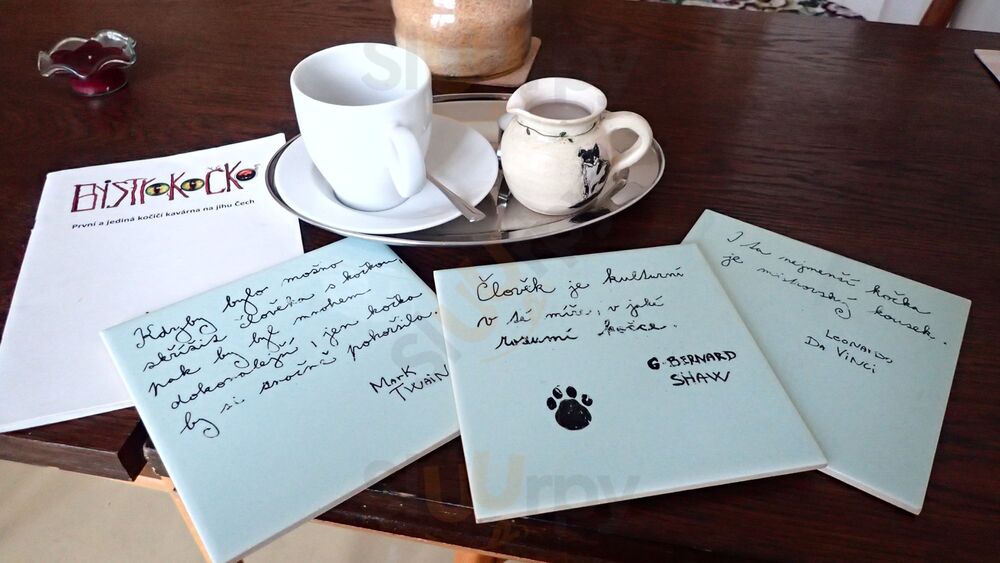 BISTROKOČKO
První a jediná kočičí kavárna na jihu Čech
Kdyby bylo možno
skřížit člověka s kočkou,
pak by byl mnohem
dokonalejší, jen kočka
by si značně pohoršila.
Mark
TWAIN
Člověk je kulturní
v té míře, v jaké
rozumí kočce.
G. BERNARD
SHAW
I ta nejmenší kočka
je mistrovský kousek.
LEONARDO
DA VINCI
Sluurpy
Sluurpy
Sluurpy